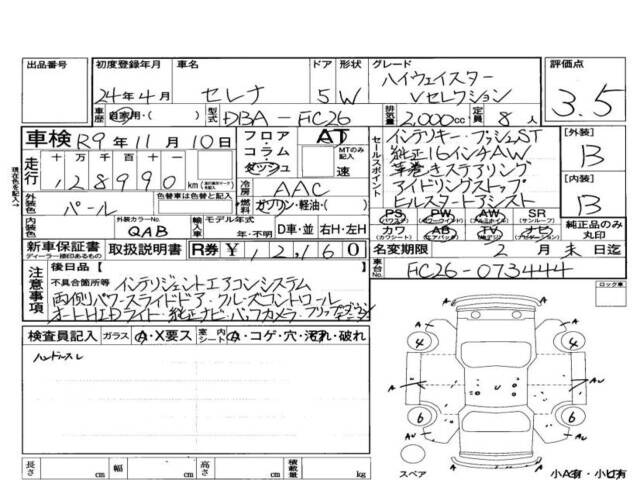 出品番号
初度登録年月 車名 ドア 形状 グレード 評価点
24年4月 セレナ 5 W ハイウェイスター
Vセレクション 3.5
車歴 自家用・( ) 型式 DBA-FC26 排気量 2,000cc 定員 8人
車検 R9年11月10日
フロア・コラム・ダッシュ AT MTのみ記入 速
走行 十万 万 千 百 十 128990km
色替車は色替と記入
冷房 AAC
燃料 ガソリン・軽油・( )
外装色 パール
内装色 外装カラーNo. QAB
輸入車 モデル年式 年・不明 D車・並 右H・左H
セールスポイント
インテリキー・プッシュST
純正16インチAW
革巻きステアリング
アイドリングストップ
ヒルスタートアシスト
[外装] B
[内装] B
PS PW AW SR
(パワステ) (パワーウインド) (アルミ) (サンルーフ)
カワ AB TV ナビ
(カワシート) (エアバッグ) (ナビゲーション)
純正品のみ丸印
新車保証書 取扱説明書 R券 ¥12,160
ディーラー捺印あるもの
名変期限 2月末日迄
車台No. FC26-073444
注意事項
後日品[ ]
不具合箇所等 インテリジェントエアコンシステム
両側パワースライドドア・クルーズコントロール
オートHIDライト・純正ナビ・バックカメラ・フリップダウンモニター
ロック車
検査員記入 ガラス A・X要ス 室内シート A・コゲ・穴・汚れ・破れ
現在色を記入→
A A
4 4
A A AU
A U
6 6
AU
A A
スペア
小A有・小U有
長さ cm 幅 cm 高さ cm 積載量 kg